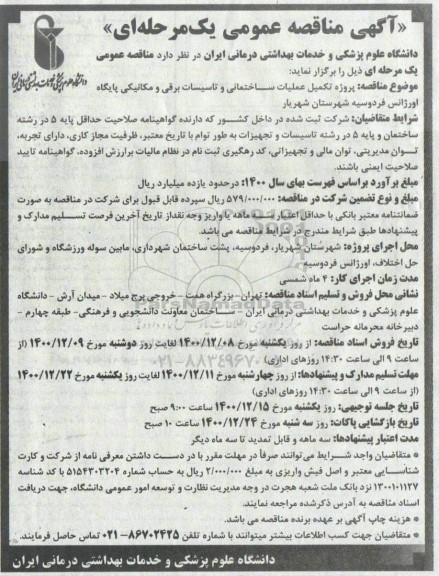 «آگهی مناقصه عمومی یک‌مرحله‌ای»
دانشگاه علوم پزشکی و خدمات بهداشتی درمانی ایران در نظر دارد مناقصه عمومی
یک مرحله ای ذیل را برگزار نماید:
موضوع مناقصه: پروژه تکمیل عملیات ساختمانی و تاسیسات برقی و مکانیکی پایگاه
اورژانس فردوسیه شهرستان شهریار
شرایط متقاضیان: شرکت ثبت شده در داخل کشور که دارنده گواهینامه صلاحیت حداقل پایه ۵ در رشته
ساختمان و پایه ۵ در رشته تاسیسات و تجهیزات به طور توام با تاریخ معتبر، ظرفیت مجاز کاری، دارای تجربه،
توان مدیریتی، توان مالی و تجهیزاتی، کد رهگیری ثبت نام در نظام مالیات برارزش افزوده، گواهینامه تایید
صلاحیت ایمنی باشند.
مبلغ برآورد براساس فهرست بهای سال ۱۴۰۰: درحدود یازده میلیارد ریال
مبلغ و نوع تضمین شرکت در مناقصه: ۵۷۹/۰۰۰/۰۰۰ ریال سپرده قابل قبول برای شرکت در مناقصه به صورت
ضمانتنامه معتبر بانکی با حداقل اعتبار سه ماهه یا واریز وجه نقداز تاریخ آخرین فرصت تسلیم مدارک و
پیشنهادها طبق شرایط مندرج در شرایط مناقصه می باشد.
محل اجرای پروژه: شهرستان شهریار، فردوسیه، پشت ساختمان شهرداری، مابین سوله ورزشگاه و شورای
حل اختلاف، اورژانس فردوسیه
مدت زمان اجرای کار: ۴ ماه شمسی
نشانی محل فروش و تسلیم اسناد مناقصه: تهران- بزرگراه همت - خروجی برج میلاد - میدان آرش - دانشگاه
علوم پزشکی و خدمات بهداشتی درمانی ایران - ساختمان معاونت دانشجویی و فرهنگی- طبقه چهارم -
دبیرخانه محرمانه حراست
تاریخ فروش اسناد مناقصه: از روز یکشنبه مورخ ۱۴۰۰/۱۲/۰۸ لغایت روز دوشنبه مورخ ۱۴۰۰/۱۲/۰۹ (از
ساعت ۹ الی ساعت ۱۴:۳۰ روزهای اداری)
مهلت تسلیم مدارک و پیشنهادها: از روز چهارشنبه مورخ ۱۴۰۰/۱۲/۱۱ لغایت روز یکشنبه مورخ ۱۴۰۰/۱۲/۲۲
(از ساعت ۹ الی ساعت ۱۴:۳۰ روزهای اداری)
تاریخ جلسه توجیهی: روز یکشنبه مورخ ۱۴۰۰/۱۲/۱۵ ساعت ۹:۰۰ صبح
تاریخ بازگشایی پاکات: روز سه شنبه مورخ ۱۴۰۰/۱۲/۲۴ ساعت ۱۰ صبح
مدت اعتبار پیشنهادها: سه ماهه و قابل تمدید تا سه ماه دیگر
* متقاضیان واجد شرایط می‌توانند صرفاً در مهلت مقرر با در دست داشتن معرفی نامه از شرکت و کارت
شناسایی معتبر و اصل فیش واریزی به مبلغ ۲/۰۰۰/۰۰۰ ریال به حساب شماره ۵۱۵۴۳۰۳۲۰۴ با کد شناسه
۱۳۰۰۱۰۱۱۲۷ نزد بانک ملت شعبه هجرت در وجه مدیریت نظارت و توسعه امور عمومی دانشگاه، جهت دریافت
اسناد مناقصه به آدرس ذکرشده مراجعه نمایند.
* هزینه چاپ آگهی بر عهده برنده مناقصه می باشد.
* متقاضیان جهت کسب اطلاعات بیشتر میتوانند با شماره تلفن ۸۶۷۰۲۴۲۵-۰۲۱ تماس حاصل فرمایند.
دانشگاه علوم پزشکی و خدمات بهداشتی درمانی ایران